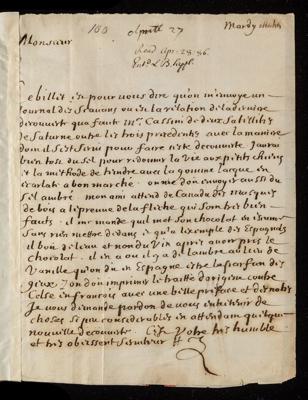 180 Aprill 27 Mardy
Read Apr. 28. 86.
Entd L.B. Suppl.
Monsieur
Ce billet est pour vous dire qu'on m'envoye un
Journal des Scavans ou est la relation de la derniere
decouverte qua faite Mr. Cassini de deux Satellites
de Saturne outre les trois precedents avec la maniere
dont il s'est servi pour faire cette decouverte J'auray
bien tost du sel pour redonner la vie aux petits chiens
et la methode de teindre avec la gomme lacque en
ecarlate a bon marché. on me doit envoyer aussi du
sel ambré mon ami attend de Canada des masques
de bois a l'epreuve de la fleche qui sont tres bien
faits. il me mande quil met son chocolat en
sans rien mettre dedans et qu'a l'exemple des Espagnols
il boit de l'eau et non du Vin apres avoir pris le
chocolat. il en a ou il y a de l'ambre au lieu de
Vanille qu'on dit en Espagne estre la parfan des
gieux. Jon doit imprimer le traitté d'origene contre
Celse en francois avec une belle preface et des notes
Je vous demande pardon de vous entretenir de
choses si peu considerables en attendant quelque
nouvelle decouverte. C'est Votre tres humble
et tres obeissant serviteur